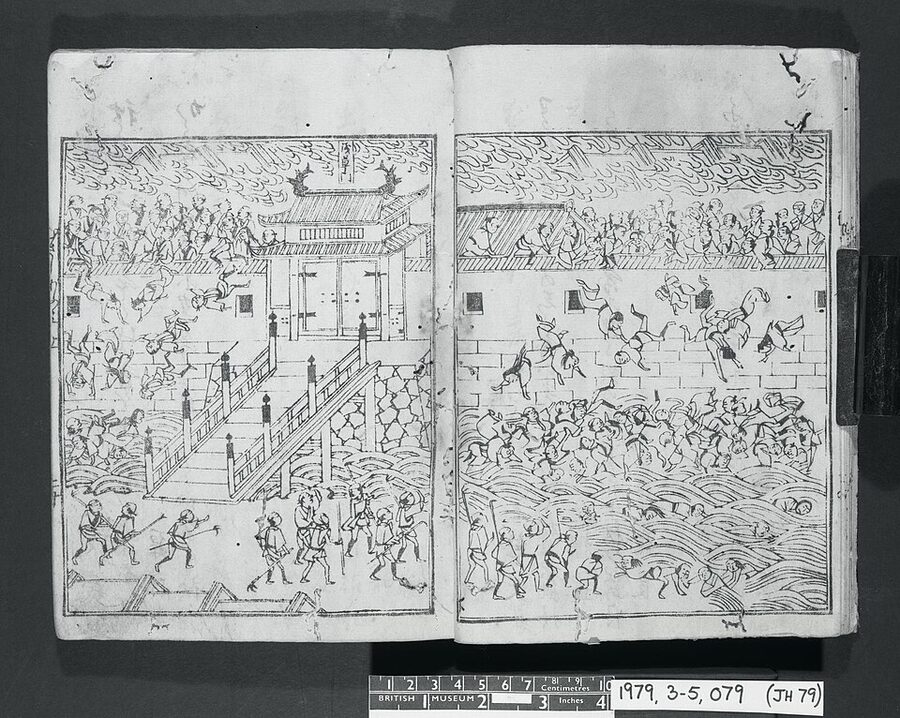 浅草
1 2 3 4 5 6 7 8 9 10
Centimetres
BRITISH MUSEUM 1 2 3 Inches 4
1979, 3-5, 079 (JH 79)